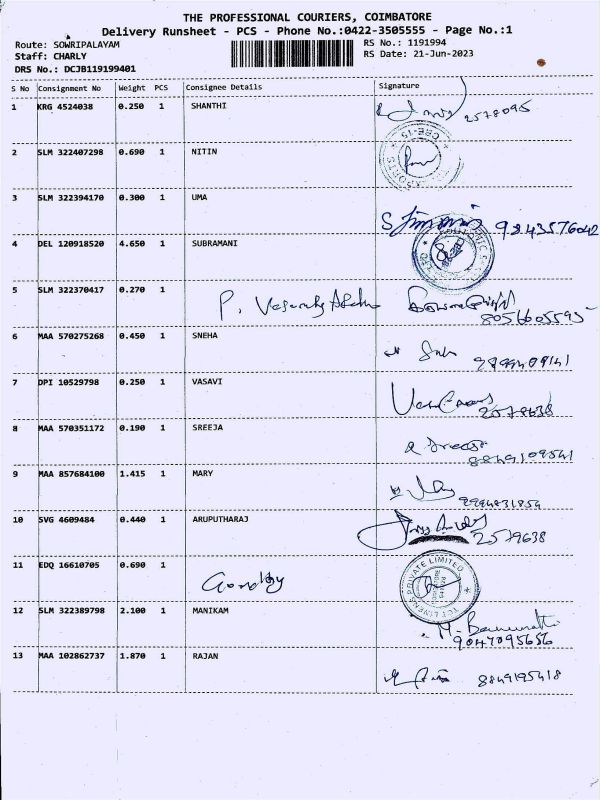 THE PROFESSIONAL COURIERS, COIMBATORE
Delivery Runsheet - PCS - Phone No.:0422-3505555 - Page No.:1
Route: SOWRIPALAYAM
RS No.: 1191994
Staff: CHARLY
RS Date: 21-Jun-2023
DRS No.: DCJB119199401
S No Consignment No Weight PCS Consignee Details Signature
1 KRG 4524038 0.250 1 SHANTHI 2578095
2 SLM 322407298 0.690 1 NITIN
3 SLM 322394170 0.300 1 UMA
9843576042
4 DEL 120918520 4.650 1 SUBRAMANI
5 SLM 322370417 0.270 1
P.
8056605595
6 MAA 570275268 0.450 1 SNEHA
7 DPI 10529798 0.250 1 VASAVI
2579638
8 MAA 570351172 0.190 1 SREEJA
8849109541
9 MAA 857684100 1.415 1 MARY
9994831854
10 SVG 4609484 0.440 1 ARUPUTHARAJ
2579638
11 EDQ 16610705 0.690 1
PRIVATE LIMITED
12 SLM 322389798 2.100 1 MANIKAM
9047095656
13 MAA 102862737 1.870 1 RAJAN
8849195418